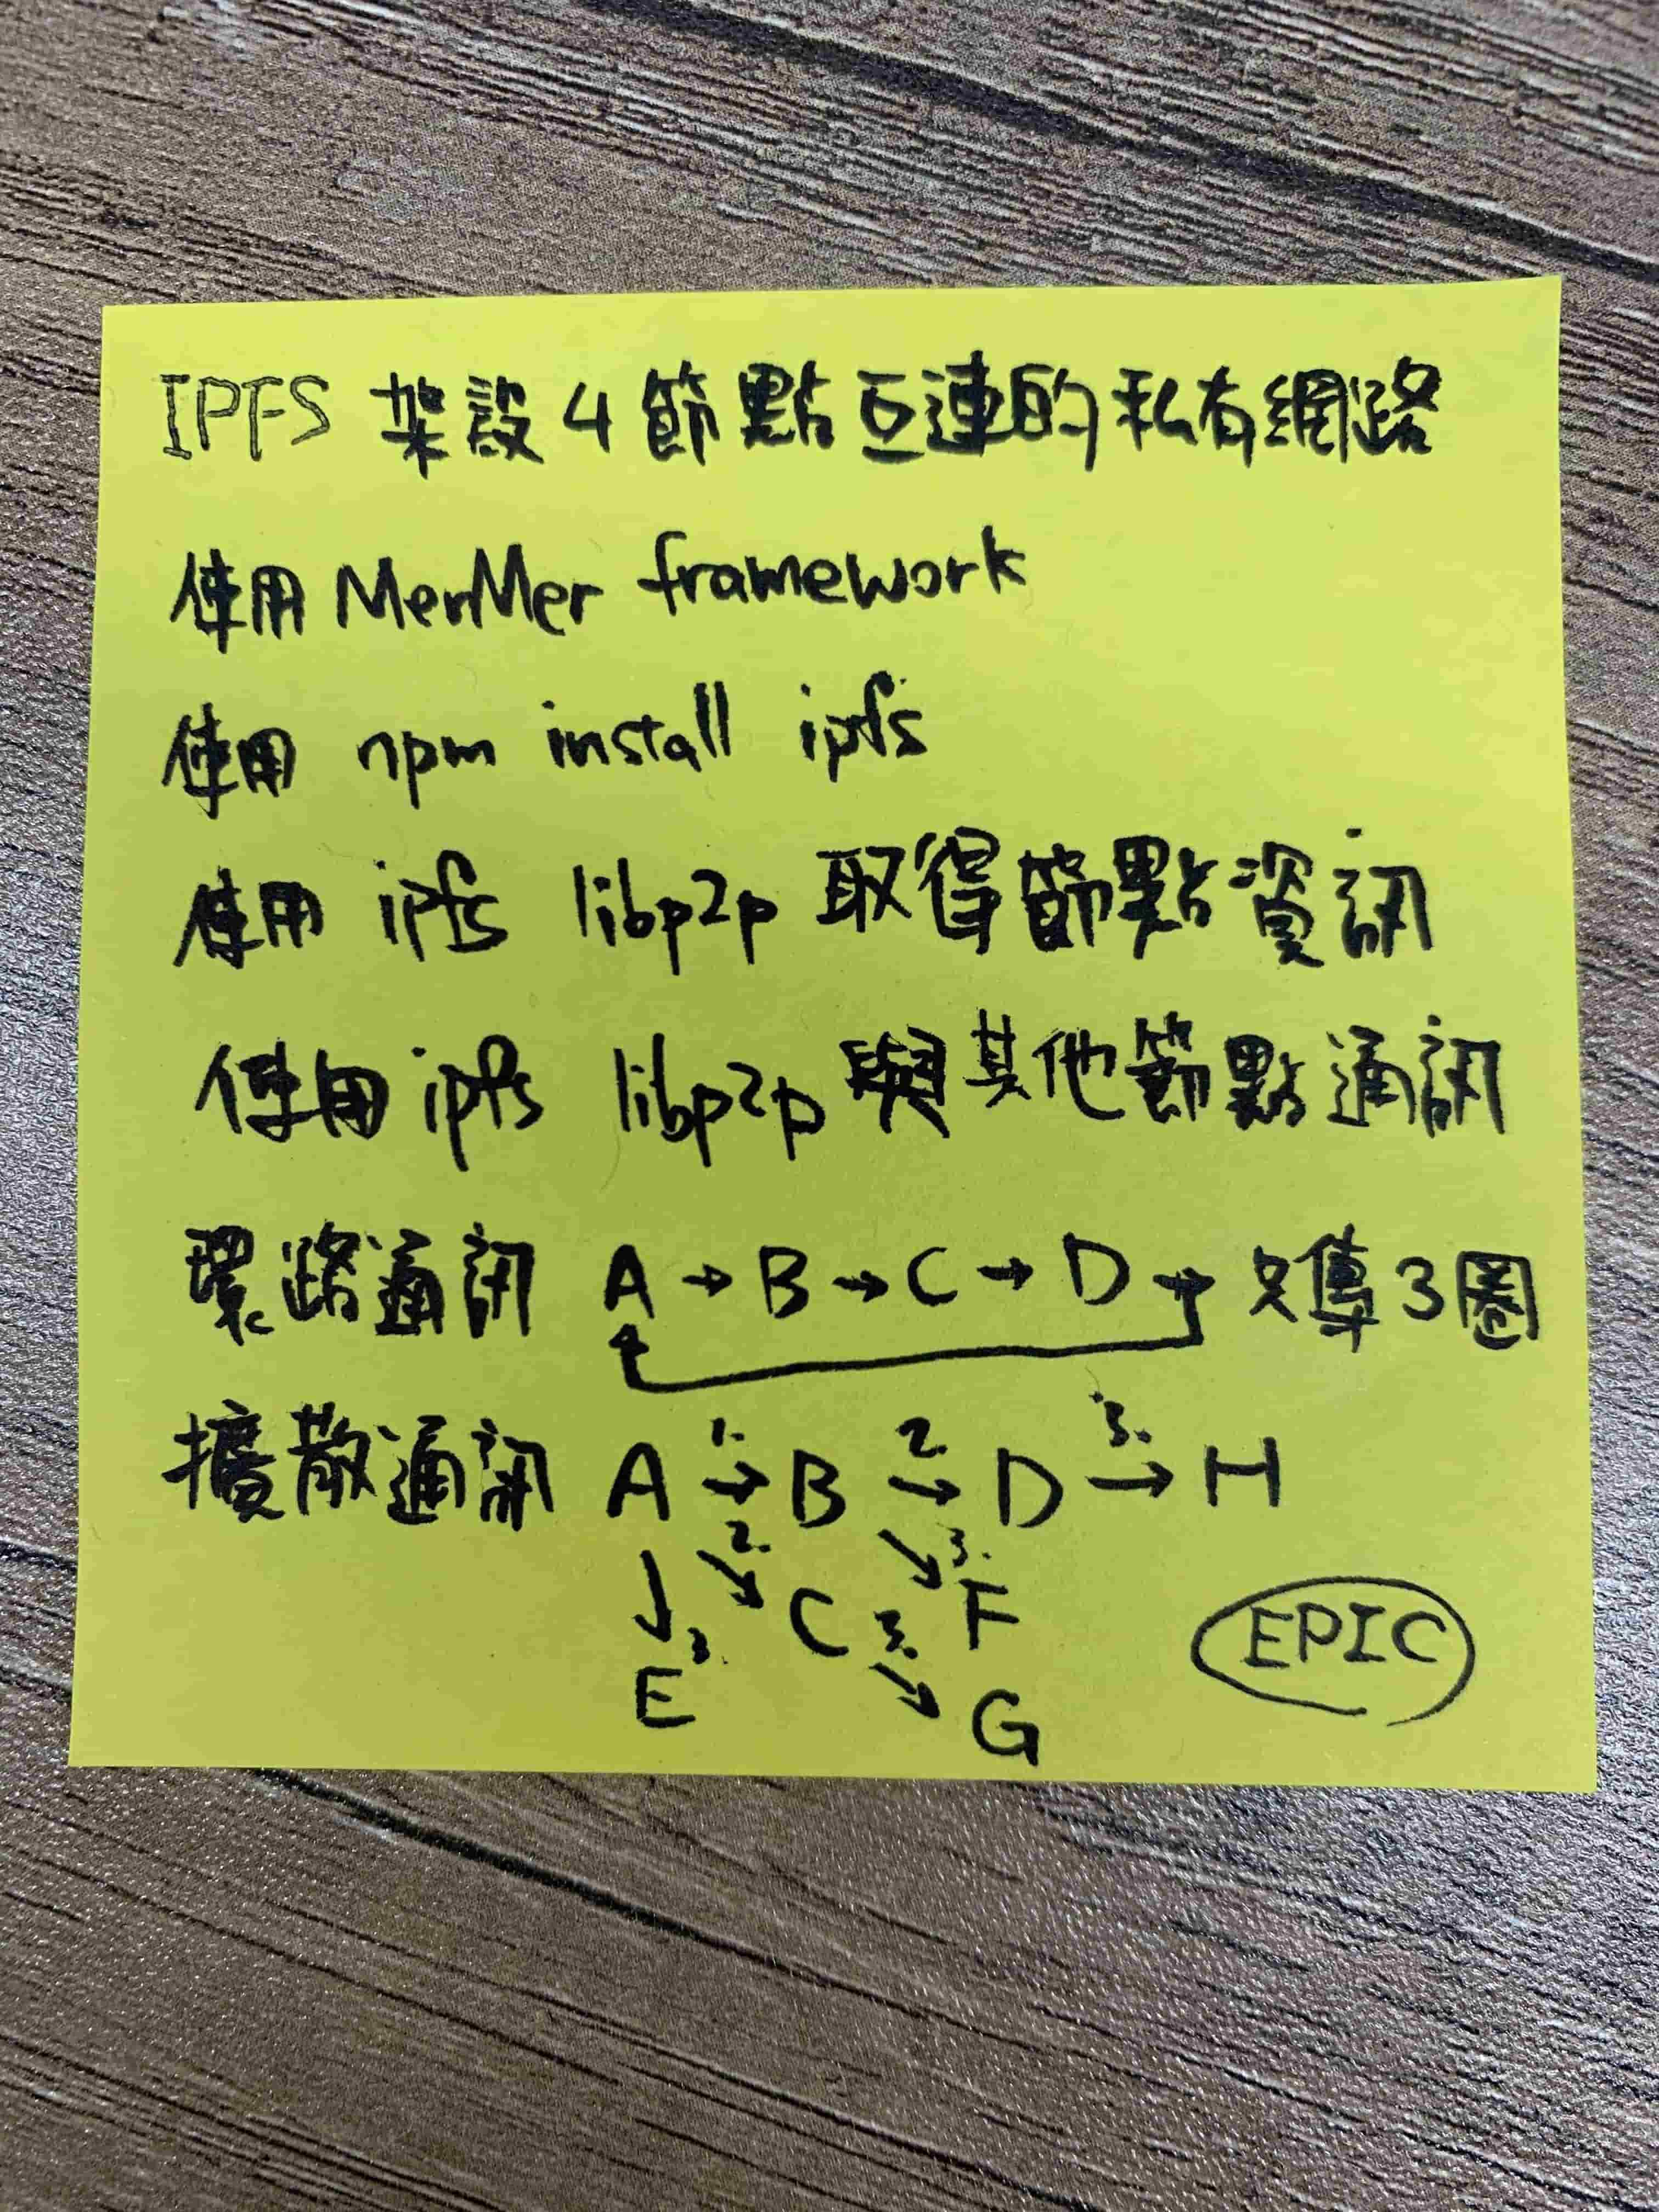 IPFS 架設 4 節點互連的私有網路
使用 MerMer framework
使用 npm install ipfs
使用 ipfs libp2p 取得節點資訊
使用 ipfs libp2p 與其他節點通訊
環路通訊 A → B → C → D → 傳 3 圈
擴散通訊 A 1. → B 2. → D 3. → H
↓ 3. ↘ 2. ↘ 3.
E C F
↘ 3. G
EPIC